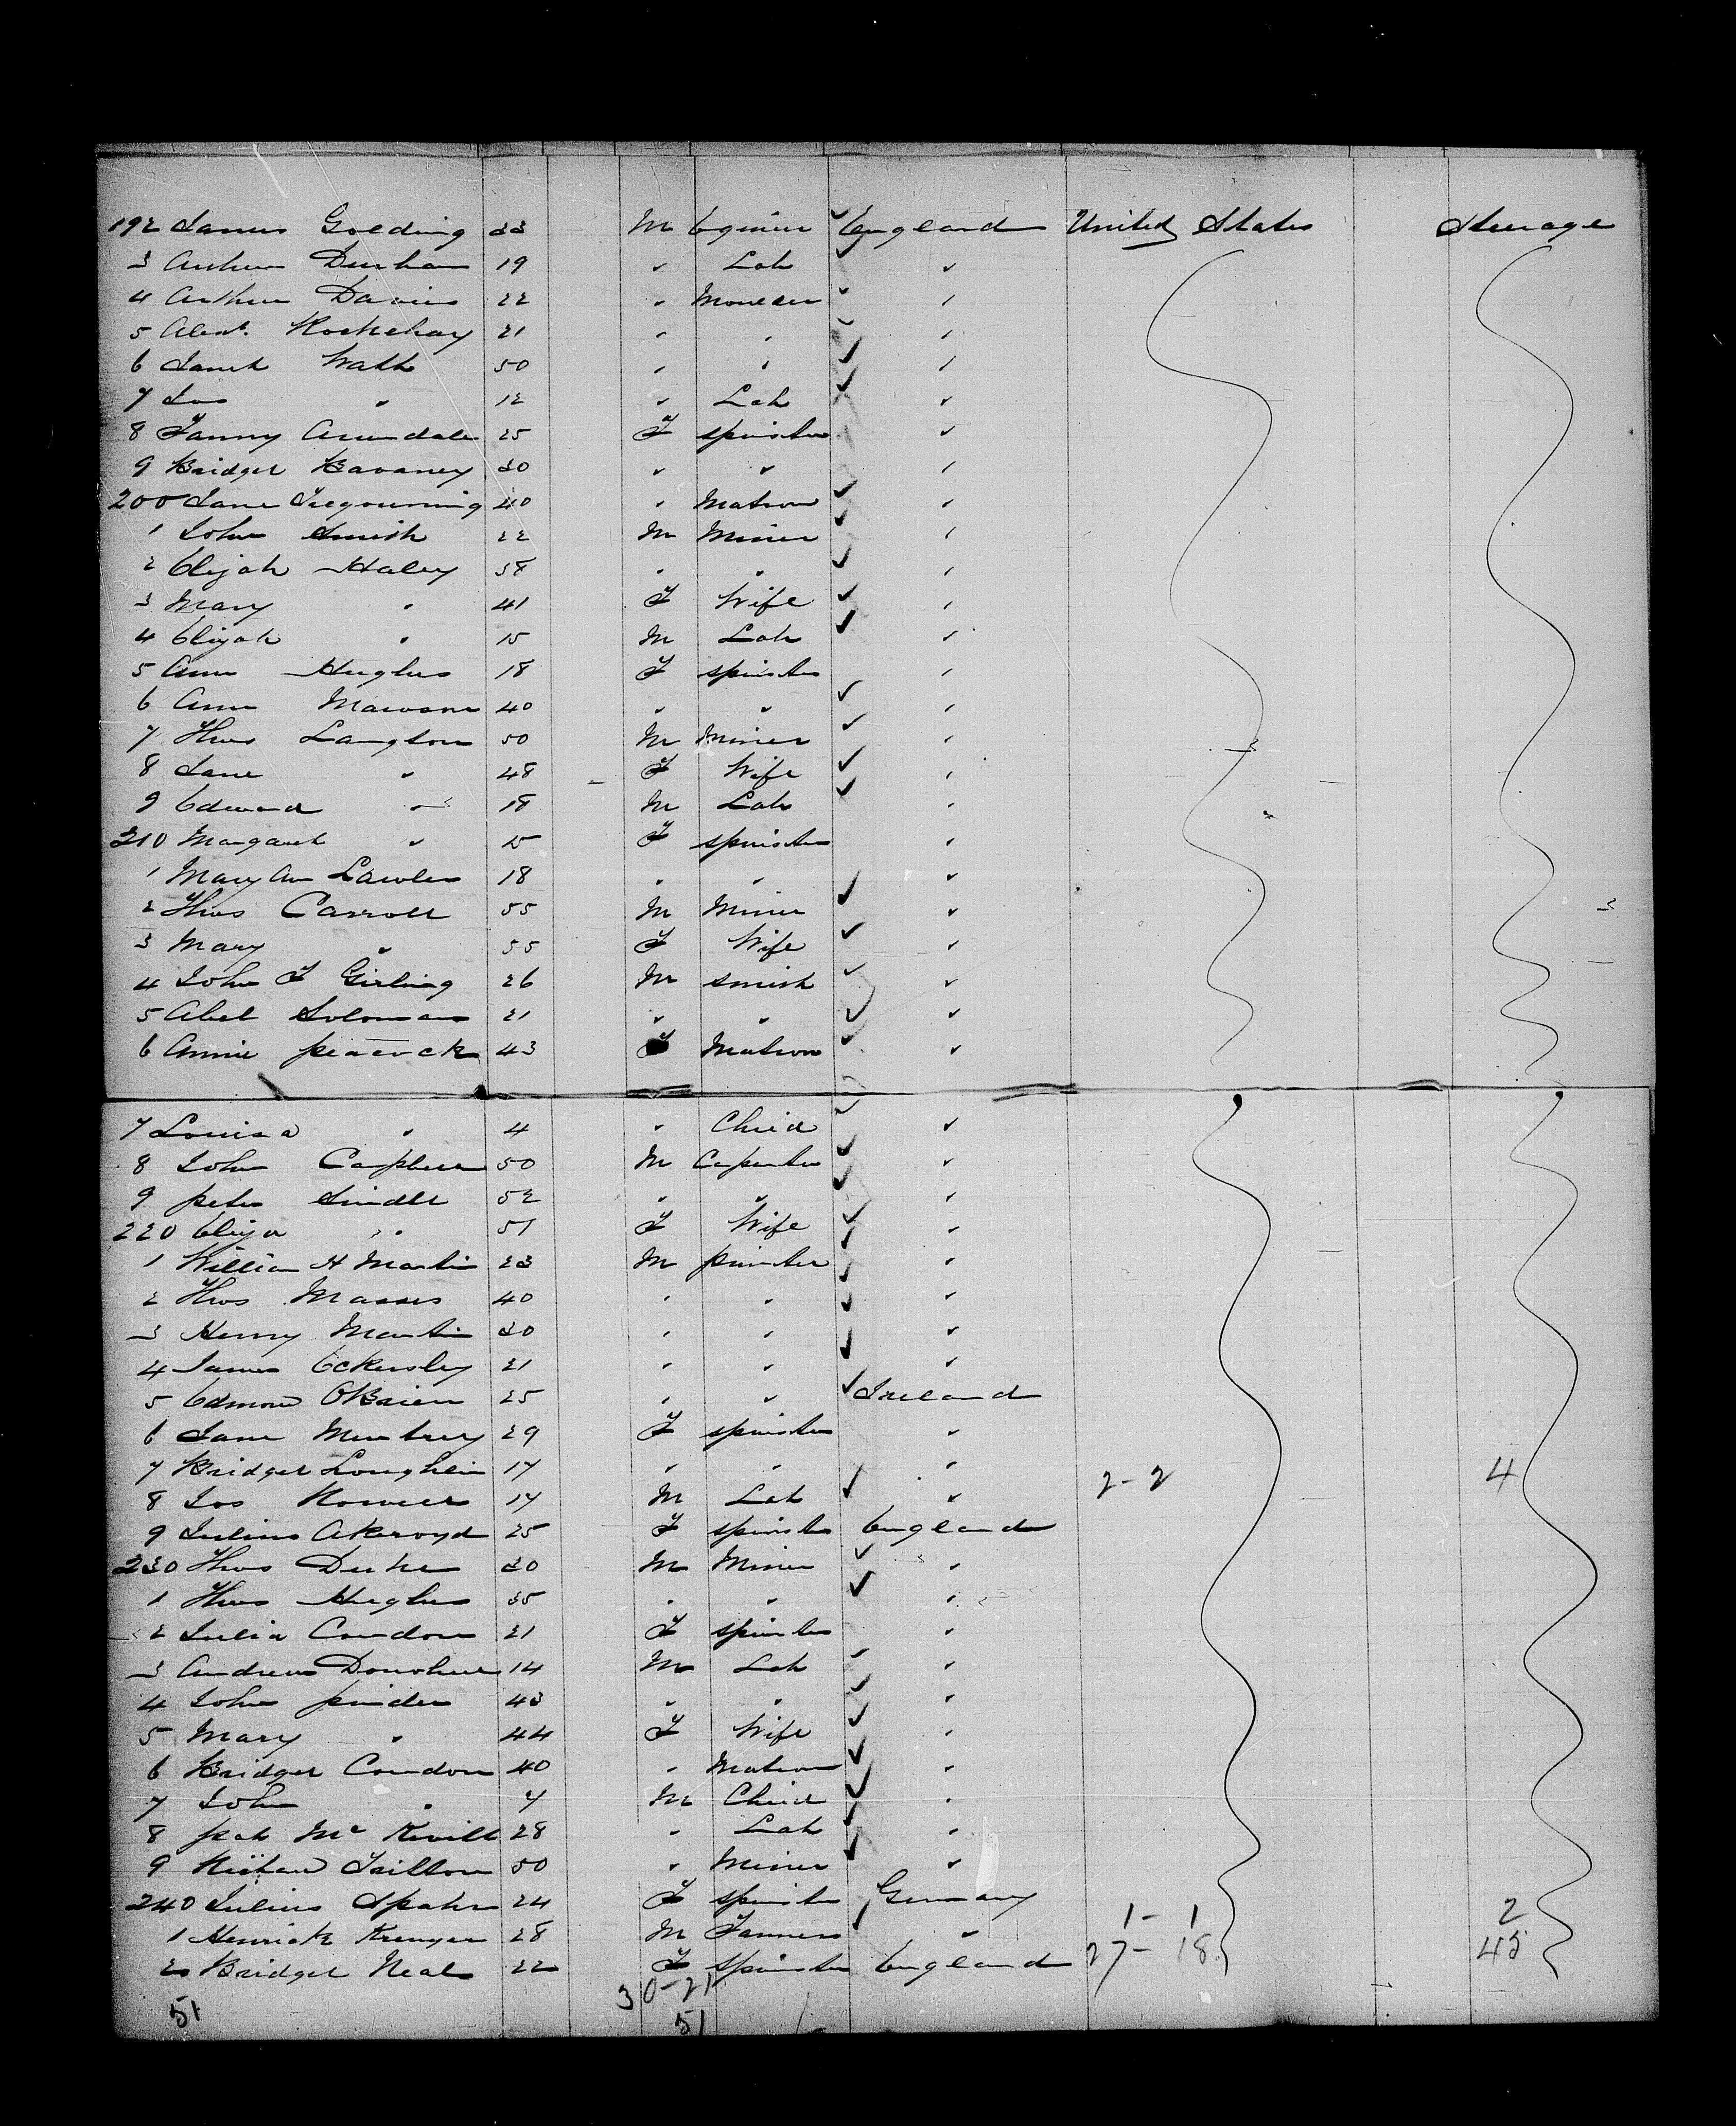 192 James Golding 33 M Enginier England United States Steerage
3 Arthur Durham 19 " Lab "
4 Arthur Davies 22 " Moulder "
5 Alexr. 21 " " "
6 50 " " "
7 Jos " 12 " Lab "
8 Fanny Arundale 25 F spinster "
9 Bridget Kavaney 30 " " "
200 Jane Tregouning 40 " Matron "
1 John Smith 22 M Miner "
2 Elijah Haley 38 " " "
3 Mary " 41 F Wife "
4 Elijah " 15 M Lab "
5 Ann Hughes 18 F spinster "
6 Ann Mawson 40 " " "
7 Thos Langton 50 M Miner "
8 Jane " 48 F Wife "
9 Edward " 18 M Lab "
210 Margaret " 15 F spinster "
1 Mary Ann Lawler 18 " " "
2 Thos Carroll 55 M Miner "
3 Mary " 55 F Wife "
4 John F Girling 26 M smith "
5 Abel Soloman 21 " " "
6 Annie peacock 43 F Matron "
7 Louisa " 4 " Child "
8 John Campbell 50 M Carpenter "
9 peter Sindle 52 " " "
220 Eliza " 51 F Wife "
1 William H Martin 23 M painter "
2 Thos Masses 40 " " "
3 Henry Martin 30 " " "
4 James Eckersley 21 " " "
5 Edmond OBrien 25 " " Ireland
6 Jane 29 F spinster "
7 Bridget Loughlin 17 " " " 2-2 4
8 Jos 17 M Lab "
9 Julius Akroyd 25 F spinster England
230 Thos Duke 30 M Miner "
1 Thos Hughes 35 " " "
2 Julia Condon 21 F spinster "
3 Andrew Donohue 14 M Lab "
4 John pinder 43 " " "
5 Mary " 44 F Wife "
6 Bridget Condon 40 " Matron "
7 John " 7 M Child "
8 pat Mc Kevill 28 " Lab "
9 Richard Trillon 50 " Miner "
240 Julius Spahn 24 F spinster Germany 1-1 2
1 Henrick Kreuger 28 M Farmer "
2 Bridget Neal 22 F spinster England 27-18 45
51 30-21
51